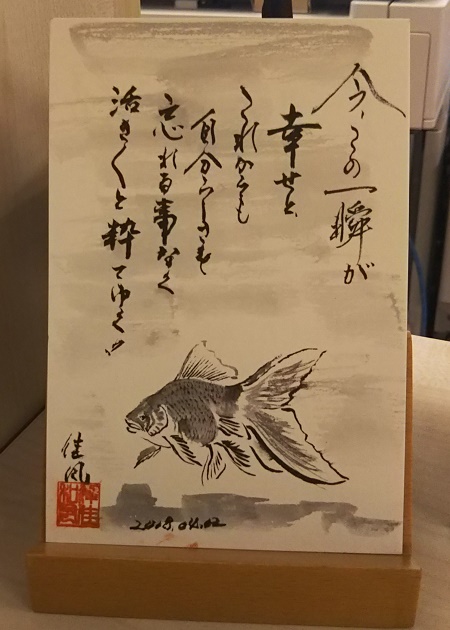 今、この一瞬が
幸せと、
これからも
自分らしさも
忘れる事なく
活き〱と粋でゆく!!
佳風
2018.04.02